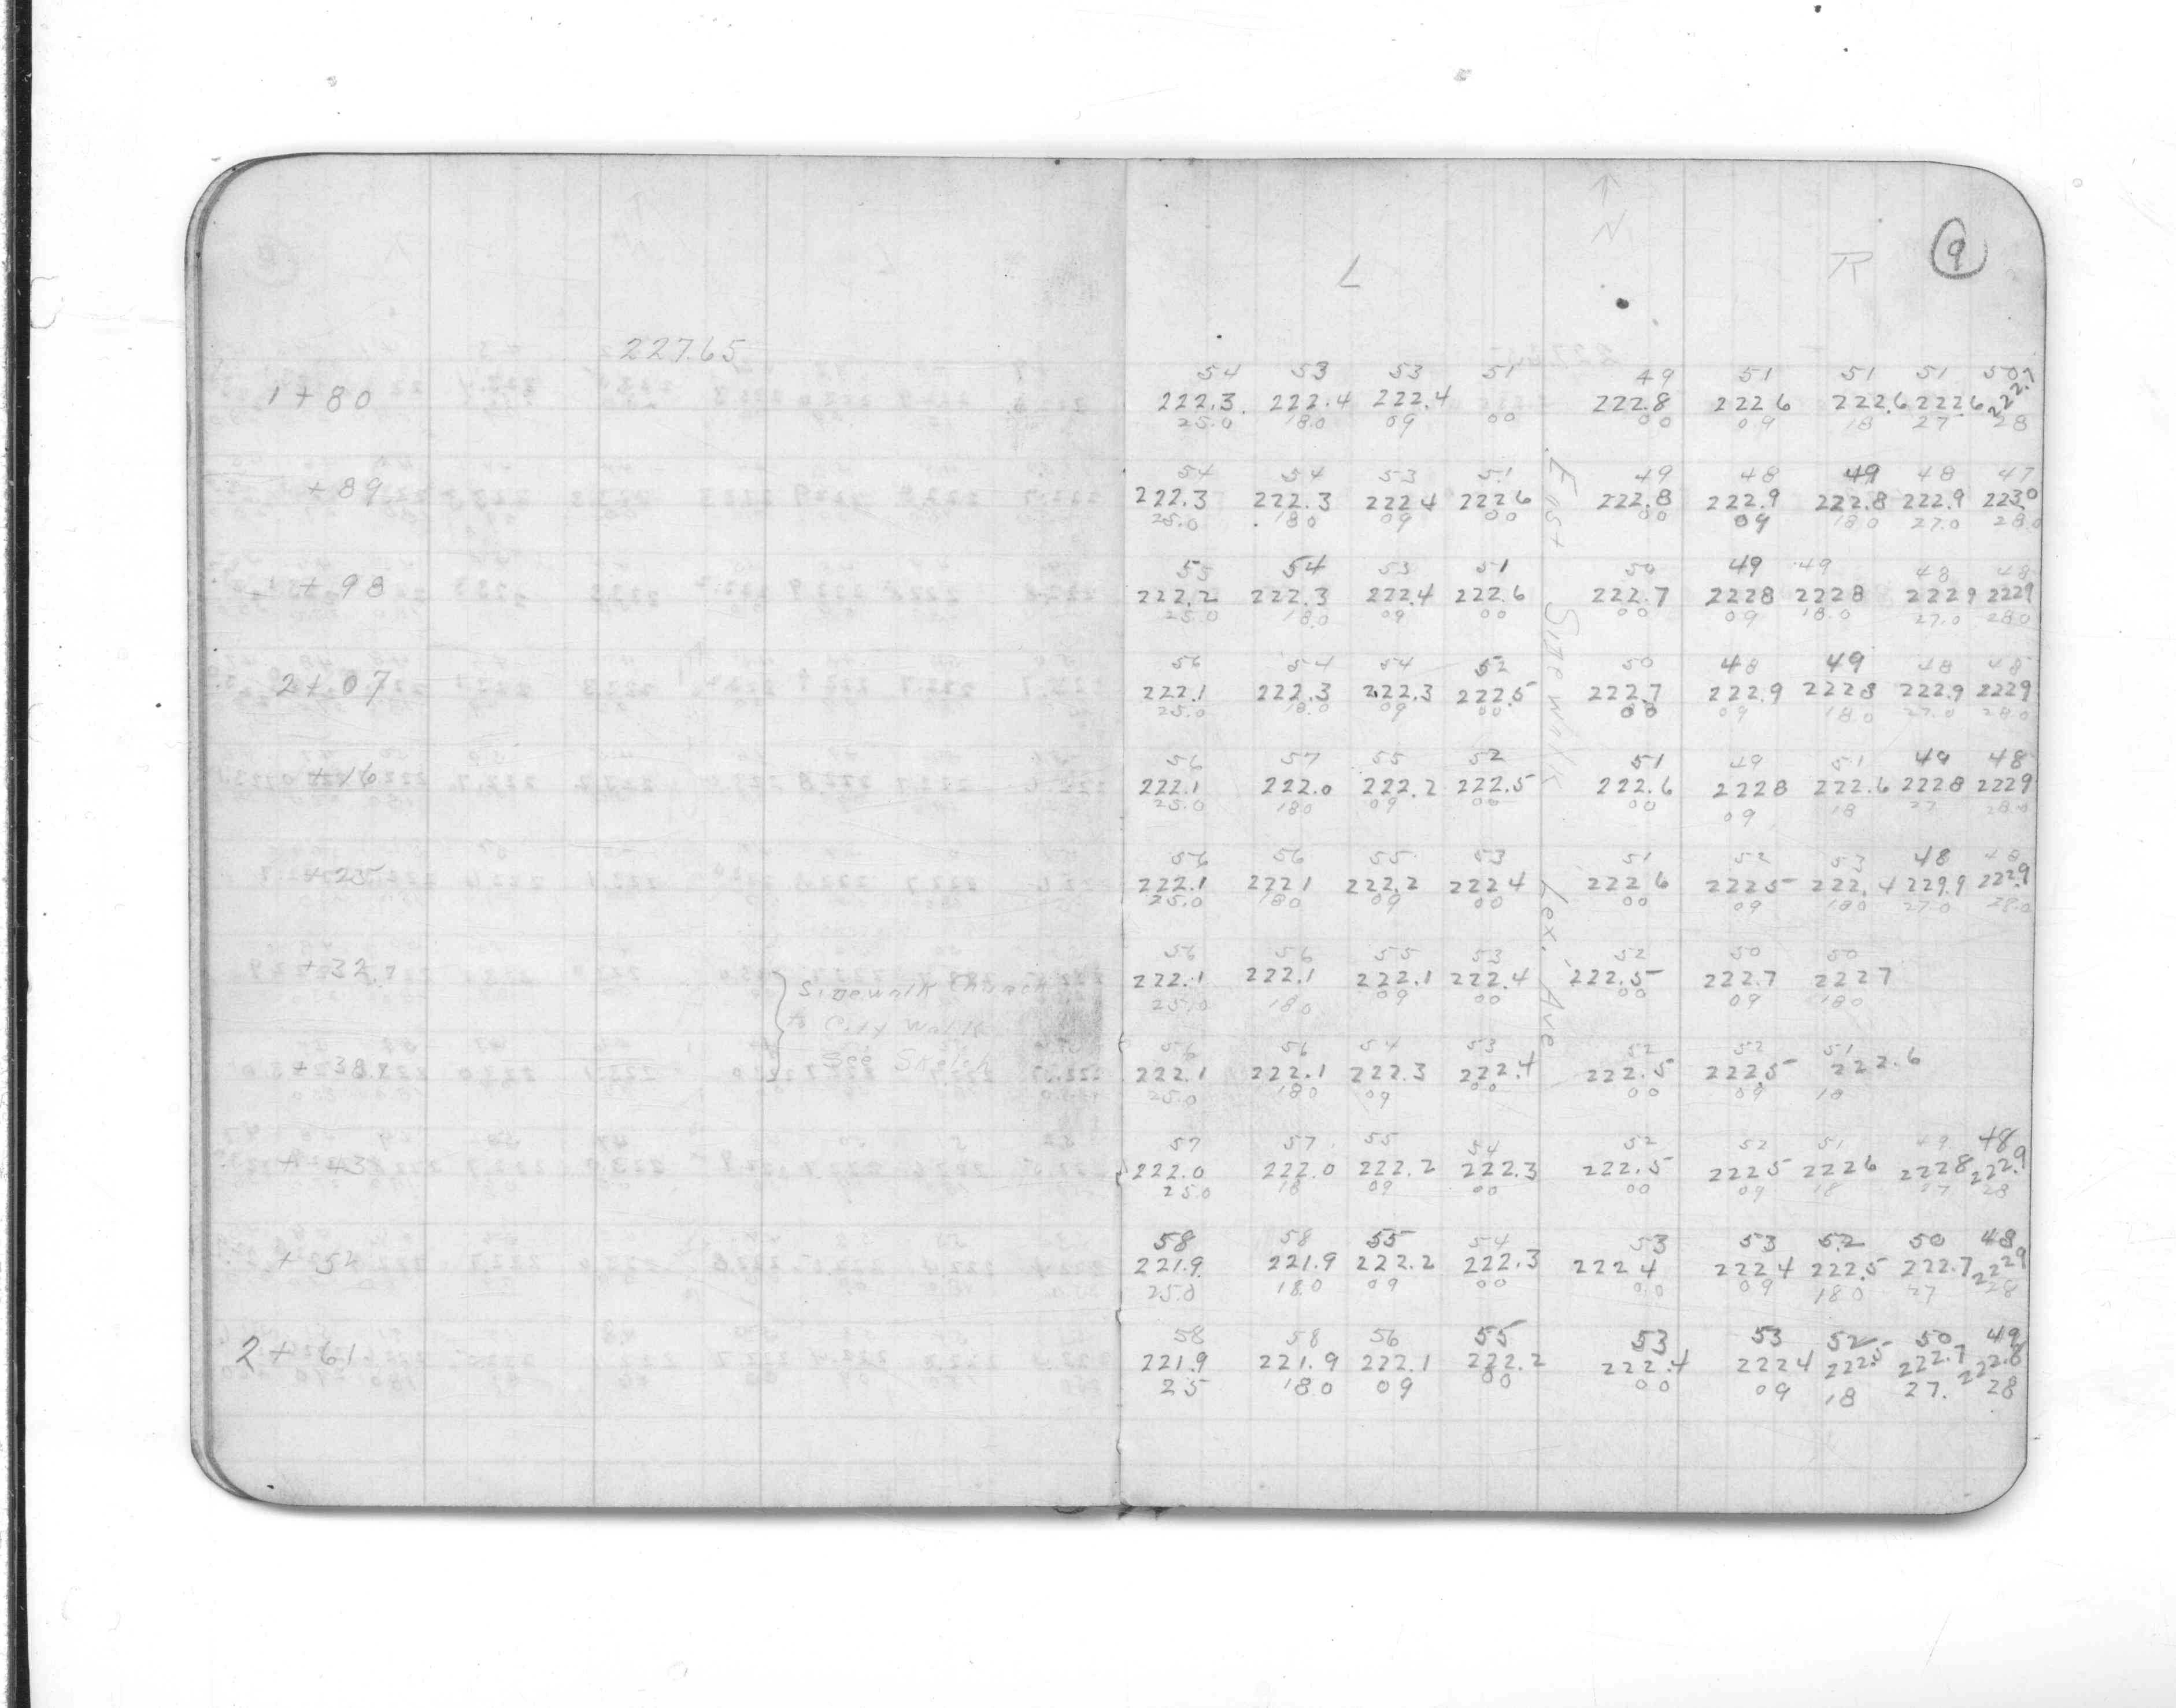 ↑
N
L R 9
227.65
54 53 53 51 49 51 51 51 50
1+80 222.3 222.4 222.4 222.8 222 6 222.6 222.6 222.7
25.0 18.0 09 00 00 09 18 27 28
54 54 53 51 49 48 49 48 47
+89 222.3 222.3 222 4 222 6 222.8 222.9 222.8 222.9 2230
25.0 18 0 09 00 00 09 18 0 27.0 28.0
55 54 53 51 50 49 49 48 48
+98 222.2 222.3 222.4 222.6 222.7 2228 2228 2229 2229
25.0 18.0 09 00 00 09 18.0 27.0 28.0
56 54 54 52 50 48 49 48 48
2+07 222.1 222.3 222.3 222.5 222.7 222.9 2228 222.9 2229
25.0 18.0 09 00 00 09 18 0 27.0 28 0
56 57 55 52 51 49 51 49 48
+16 222.1 222.0 222.2 222.5 222.6 2228 222.6 2228 2229
25.0 180 09 00 00 09 18 27 28.0
56 56 55 53 51 52 53 48 48
+25 222.1 222 1 222.2 222 4 222 6 2225 222.4 229.9 222.9
25.0 180 09 00 00 09 180 27.0 28.0
56 56 55 53 52 50 50
+32.7 222.1 222.1 222.1 222.4 222.5 222.7 2227
25.0 180 09 00 00 09 180
Sidewalk Church
to City Walk
See Sketch
56 56 54 53 52 52 51
+38.7 222.1 222.1 222.3 222.4 222.5 2225 222.6
25.0 180 09 00 00 09 18
57 57 55 54 52 52 51 49 48
+43 222.0 222.0 222.2 222.3 222.5 2225 2226 2228 222.9
25.0 18 09 00 00 09 18 27 28
58 58 55 54 53 53 52 50 48
+52 221.9 221.9 222.2 222.3 222 4 222 4 222.5 222.7 2229
25.0 18.0 09 00 00 09 180 27 28
58 58 56 55 53 53 52 50 49
2+61 221.9 221.9 222.1 222.2 222.4 2224 222.5 222.7 222.8
25 18.0 09 00 00 09 18 27. 28
East Sidewalk Lex. Ave